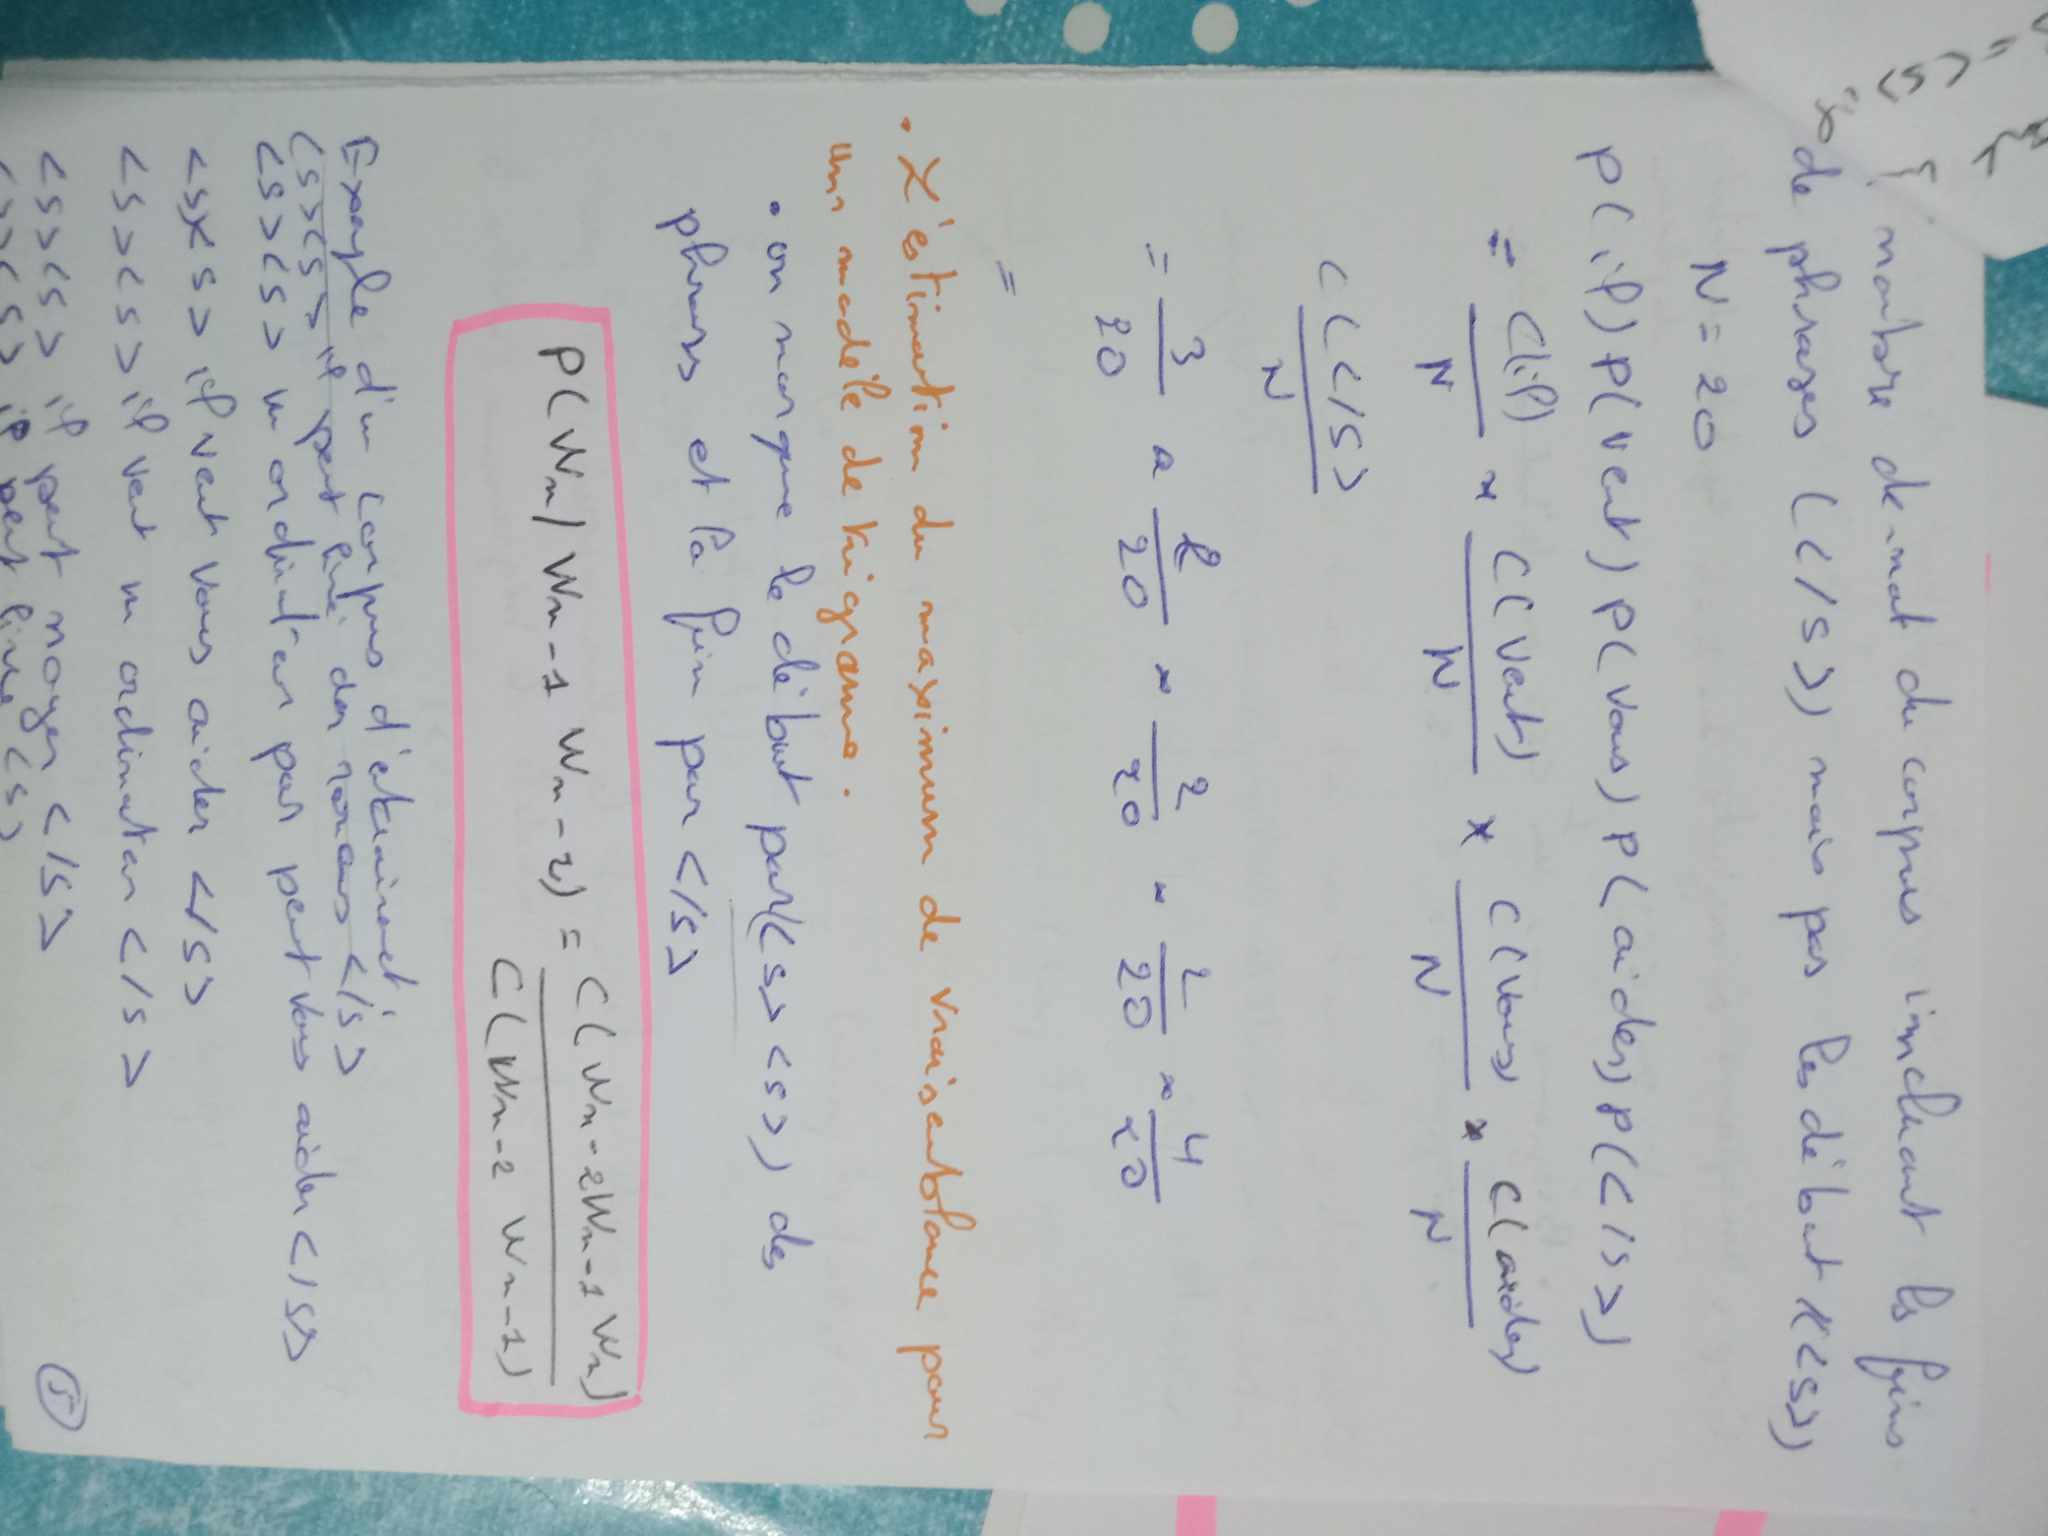 nombre de mot du corpus incluant les fins
de phrases (</s>) mais pas les début (<s>)
N = 20
P(il) P(veut) P(vous) P(aider) P(</s>)
= C(il)/N x C(veut)/N x C(vous)/N x C(aider)/N
C(</s>)/N
= 3/20 x 2/20 x 2/20 x 2/20 x 4/20
=
• L'estimation du maximum de vraisemblance pour
un modèle de trigramme.
• on marque le début par (<s> <s>) des
phrases et la fin par </s>
P(Wn / Wn-1 Wn-2) = C(Wn-2 Wn-1 Wn) / C(Wn-2 Wn-1)
Exemple d'un corpus d'
<s><s> il peut lire des romans </s>
<s><s> un ordinateur peut vous aider </s>
<s><s> il veut vous aider </s>
<s><s> il veut un ordinateur </s>
<s><s> il peut nager </s>
<s><s> il peut
5